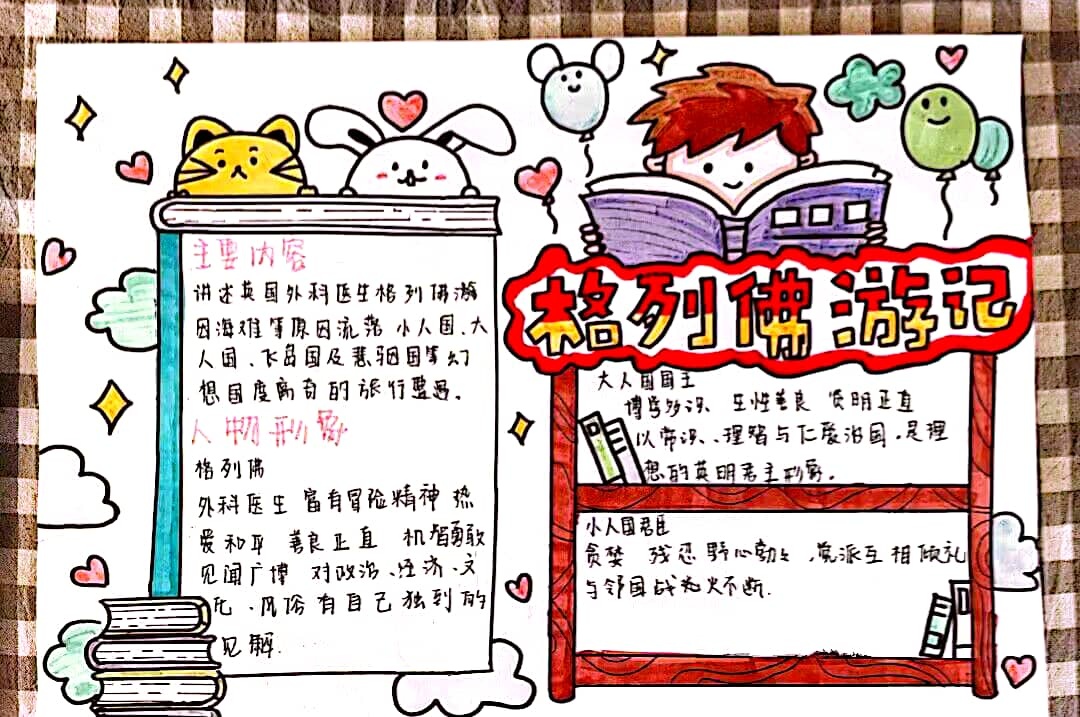 格列佛游记
主要内容
讲述英国外科医生格列佛游
因海难等原因流落小人国、大
人国、飞岛国及慧骃国等幻
想国度离奇的旅行
人物形象
格列佛
外科医生 富有冒险精神 热
爱和平 善良正直 机智勇敢
见闻广博 对政治、经济、文
化、风俗有自己独到的
见解.
大人国国王
博学多识、生性善良 贤明正直
以常识、理智与仁爱治国,是理
想的英明君主形象。
小人国君臣
贪婪 残忍 野心勃勃,党派互相倾轧
与邻国战火不断.